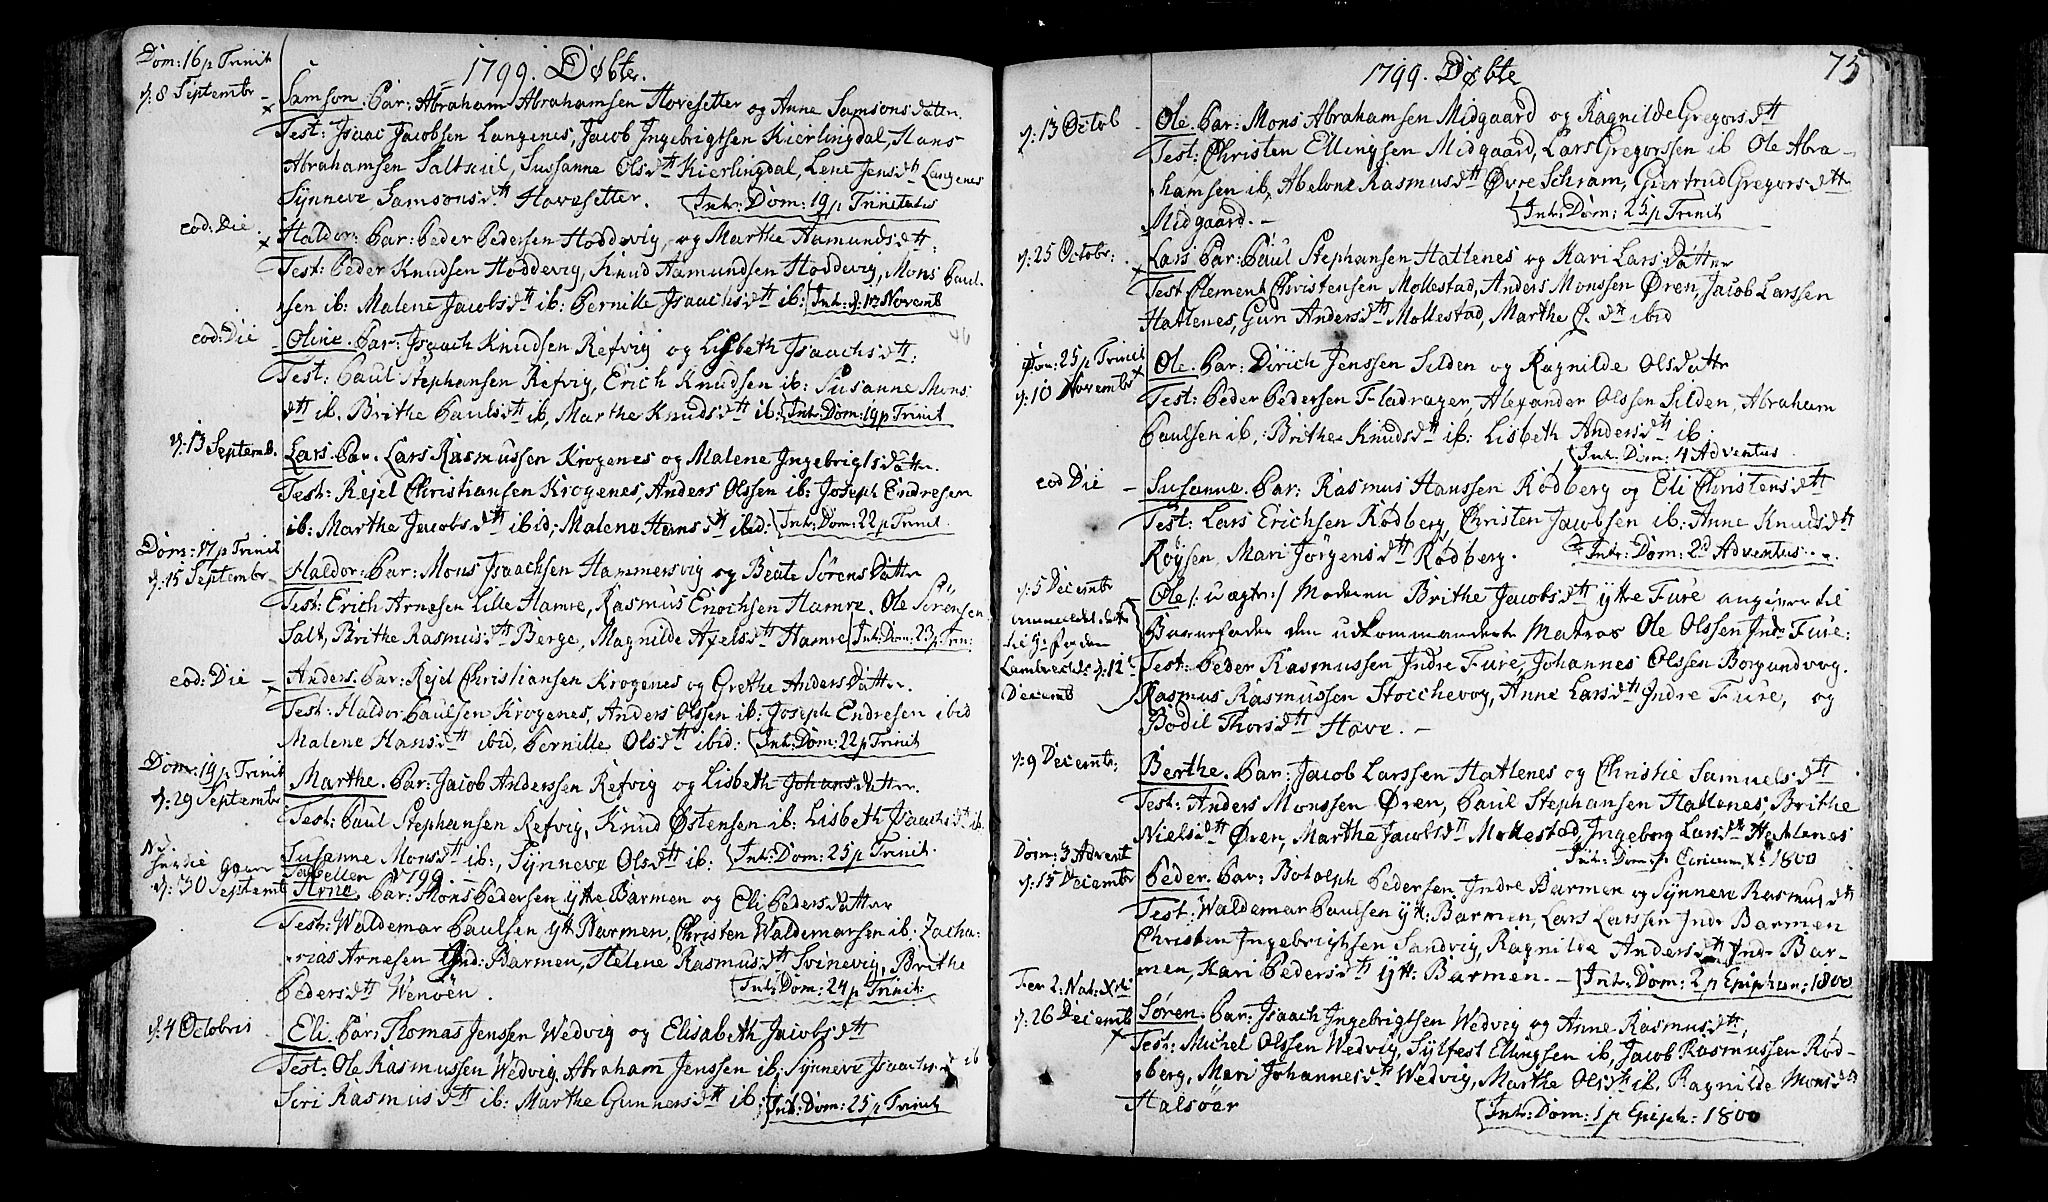 1799. Døbte.
Dom: 16 p Trinit
d: 8 Septembr
Samson. Par: Abraham Abrahamsen Hovesetter og Anne Samsons datter.
Test: Isaac Jacobsen Langenes, Jacob Ingebrigtsen Kierlingdal, Hans
Abrahamsen Saltsuil, Sussanne Olsdtt Kierlingdal, Lene Jensdtt Langenes
Synneve Samsonsdtt Hovesetter. Intr: Dom: 19 p Trinitatis
eod: Die
Haldor: Par: Peder Pedersen Hoddevig, og Marthe Aamundsdtt:
Test: Peder Knudsen Hoddevig, Knud Aamundsen Hoddevig, Mons Paul-
sen ib: Malene Jacobsdtt ib: Pernille Isaachsdtt ib: Intr: d: 17 Novemb
eod: Die
Oline. Par: Isaach Knudsen Refvig og Lisbeth Isaachsdtt:
Test: Paul Stephansen Refvig, Erich Knudsen ib: Susanne Mons
dtt ib. Brithe Paulsdtt ib, Marthe Knudsdtt ib: Intr: Dom: 19 p Trinit
d: 13 Septemb.
Lars. Par. Lars Rasmussen Krogenes og Malene Ingebrigtsdatter.
Test: Rejel Christiansen Krogenes, Anders Olssen ib: Joseph Endresen
ib: Marthe Jacobsdtt ibid; Malene Hansdtt ibid: Intr: Dom: 22 p Trinit.
Dom: 17 p Trinit
d: 15 Septembr
Haldor: Par: Mons Isaachsen Hammersvig og Beate Sørens Datter
Test: Erich Arnesen Lille Hamre, Rasmus Enochsen Hamre. Ole Sørensen
Salt, Brithe Rasmusdtt Berge, Magnilde Axelsdtt Hamre Intr: Dom: 23 p Trin:
eod: Die
Anders. Par: Rejel Christiansen Krogenes og Grethe Anders Datter.
Test: Haldor Paulsen Krogenes, Anders Olssen ib: Joseph Endresen ibid
Malene Hansdtt ibid, Pernille Olsdtt ibid: Intr: Dom: 22 p Trinit
Dom: 19 p Trinit
d: 29 Septembr
Marthe. Par: Jacob Anderssen Refvig og Lisbeth Johansdatter.
Test: Paul Stephansen Refvig, Knud Østensen ib: Lisbeth Isaachsdtt ib.
Susanne Monsdtt ib:, Synneve Olsdtt ib: Intr: Dom: 25 p Trinit.
d: 30 Septemb
1799
Arne. Par: Mons Pedersen ytte Barmen og Eli Peders datter
Test: Waldemar Paulsen ytt Barmen, Christen Waldemarsen ib: Zacha-
rias Arnesen Ind: Barmen, Helene Rasmusdtt Svinevig, Brithe
Pedersdtt Wenøen. Intr: Dom: 24 p Trinit:
d: 4 Octobris
Eli. Par: Thomas Jenssen Wedvig og Elisabeth Jacobsdtt
Test: Ole Rasmussen Wedvig, Abraham Jenssen ib: Synneve Isaachsdtt ib
Siri Rasmusdtt ib: Marthe Gunnersdtt ib: Intr: Dom: 25 p Trinit
1799. Døbte
75
d: 13 Octob
Ole. Par: Mons Abrahamsen Midgaard og Ragnilde Gregorsdtt
Test: Christen Ellingsen Midgaard, Lars Gregorssen ib Ole Abra-
hamsen ib, Abelone Rasmusdtt Øvre Schram, Giertrud Gregorsdtt
Midgaard. - Intr: Dom: 25 p Trinit
d: 25 Octobr:
Lars Par: Paul Stephansen Hatlenes og Kari Lars Datter
Test Clement Christensen Mollestad, Anders Monssen Øren, Jacob Larssen
Hatlenes, Guri Andersdtt Mollestad, Marthe P. dtt ibid
Dom: 25 p Trinit
d: 10 Novembr
Ole. Par: Dirich Jenssen Silden og Ragnilde Olsdatter
Test: Peder Pedersen Fladrager, Alexander Olssen Silden, Abraham
Paulsen ib, Brithe Knudsdtt ib: Lisbeth Andersdtt ib.
Intr: Dom: 4 Adventus
eod Die
Susanne. Par: Rasmus Hanssen Rødberg og Eli Christensdtt
Test: Lars Erichsen Rødberg, Christen Jacobsen ib: Anne Knudsdtt
Røysen, Mari Jørgensdtt Rødberg. Intr: Dom: 2d Adventus
d: 5 Decembr
d: 12
Decemb
Ole /: uægte :/ Moderen Brithe Jacobsdtt ytre Fure angiver til
Barnefader den udkommanderte Matros Ole Olssen Indr Fure:
Test: Peder Rasmussen Indre Fure, Johannes Olssen Borgundvog.
Rasmus Rasmussen Stocchevog, Anne Larsdtt Indre Fure, og
Bodil Thorsdtt Hove. -
d: 9 Decembr:
Berthe. Par: Jacob Larssen Hatlenes og Christie Samuelsdtt
Test: Anders Monssen Øren, Paul Stephansen Hatlenes, Brithe
Nielsdtt Øren, Marthe Jacobsdtt Mollestad, Ingeborg Larsdtt Hatlenes
1800
Dom: 3 Advent
d: 15 Decembr
Peder. Par: Botolph Pedersen Indre Barmen og Synneve Rasmusdtt
Test: Waldemar Paulsen ytt: Barmen, Lars Larssen Indr Barmen
Christen Ingebrigtsen Sandvig, Ragnilde Andersdtt Indr Bar-
men, Kari Pedersdtt ytt: Barmen. - Intr: Dom: 2 p Epiphan: 1800
Fer 2: Nat: Xti
d: 26 Decemb
Søren. Par: Isaach Ingebrigtsen Wedvig og Anne Rasmusdtt,
Test: Michel Olssen Wedvig, Sylfest Ellingsen ib, Jacob Rasmussen Rød-
berg, Mari Johannesdtt Wedvig, Marthe Olsdtt ib. Ragnilde Monsdtt
Halsøer Intr: Dom: 1 p Epiph: 1800